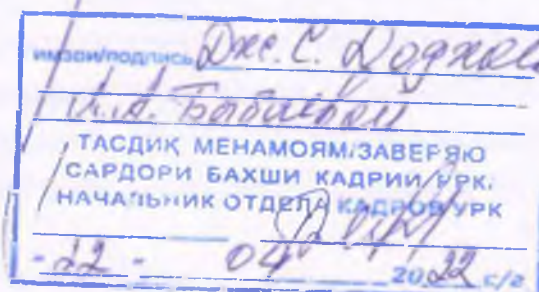 имзои/подпись Дж. С.
ТАСДИҚ МЕНАМОЯМ/ЗАВЕРЯЮ
САРДОРИ БАХШИ КАДРИИ УРК/
НАЧАЛЬНИК ОТДЕЛА КАДРОВ УРК
- 22 - 04 2022 с/г